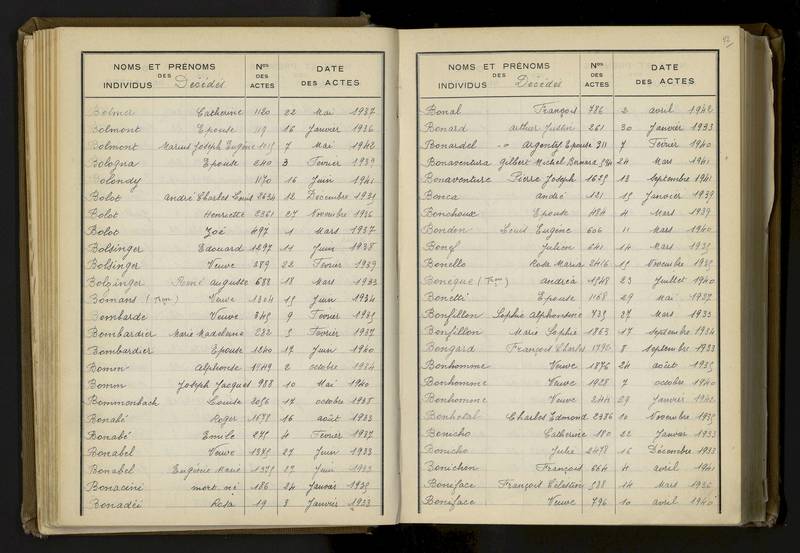 NOMS ET PRÉNOMS DES INDIVIDUS Décédés Nos DES ACTES DATE DES ACTES
Bolmer Catherine 1120 22 Mai 1937
Bolmont Epouse 119 16 Janvier 1936
Bolmont Marius Joseph Eugène 1015 7 Mai 1942
Bologna Epouse 240 3 Février 1939
Bolondy 1170 16 Juin 1941
Bolot André Charles Louis 2634 12 Décembre 1935
Bolot Henriette 2361 27 Novembre 1936
Bolot Zoé 497 1 Mars 1937
Bolsinger Edouard 1297 11 Juin 1938
Bolsinger Veuve 389 22 Février 1939
Bolzinger René Auguste 688 18 Mars 1933
Bomans Veuve 1304 15 Juin 1934
Bombarde Veuve 345 9 Février 1935
Bombardier Marie Madeleine 282 5 Février 1937
Bombardier Epouse 1240 17 Juin 1940
Bomm Alphonse 1949 2 octobre 1934
Bomm Joseph Jacques 988 10 Mai 1940
Bommonbach Louise 2056 17 octobre 1935
Bonabé Roger 1678 16 août 1933
Bonabé Emile 275 4 Février 1937
Bonabel Veuve 1375 27 Juin 1933
Bonabel Eugénie Marie 1375 27 Juin 1933
Bonacini mort né 186 24 Janvier 1935
Bonadéi Rosa 19 3 Janvier 1933
42
NOMS ET PRÉNOMS DES INDIVIDUS Décédés Nos DES ACTES DATE DES ACTES
Bonal François 786 2 avril 1942
Bonard Arthur Justin 261 30 Janvier 1933
Bonardel Argentif Epouse 311 7 Février 1940
Bonaventura Gilbert Michel 24 Mars 1941
Bonaventure Pierre Joseph 1635 13 Septembre 1941
Bonca André 121 15 Janvier 1939
Bonchoux Epouse 484 4 Mars 1939
Bondon Louis Eugène 606 11 Mars 1940
Julien 641 14 Mars 1935
Bonello Rose Maria 2416 15 Novembre 1935
Bonèque Andréa 1548 23 Juillet 1940
Bonetti Epouse 1168 29 Mai 1937
Bonfillon Sophie Alphonsine 735 27 Mars 1933
Bonfillon Marie Sophie 1863 17 Septembre 1934
Bongard François Charles 1796 8 Septembre 1933
Bonhomme Veuve 1876 24 août 1935
Bonhomme Veuve 1928 7 octobre 1940
Bonhomme Veuve 244 29 Janvier 1942
Bonhotal Charles Edmond 2386 10 Novembre 1935
Bonicho Catherine 180 22 Janvier 1933
Bonicho Julie 2478 16 Décembre 1933
Bonichon François 664 4 avril 1941
Boniface François Célestin 538 14 Mars 1936
Boniface Veuve 796 10 avril 1940